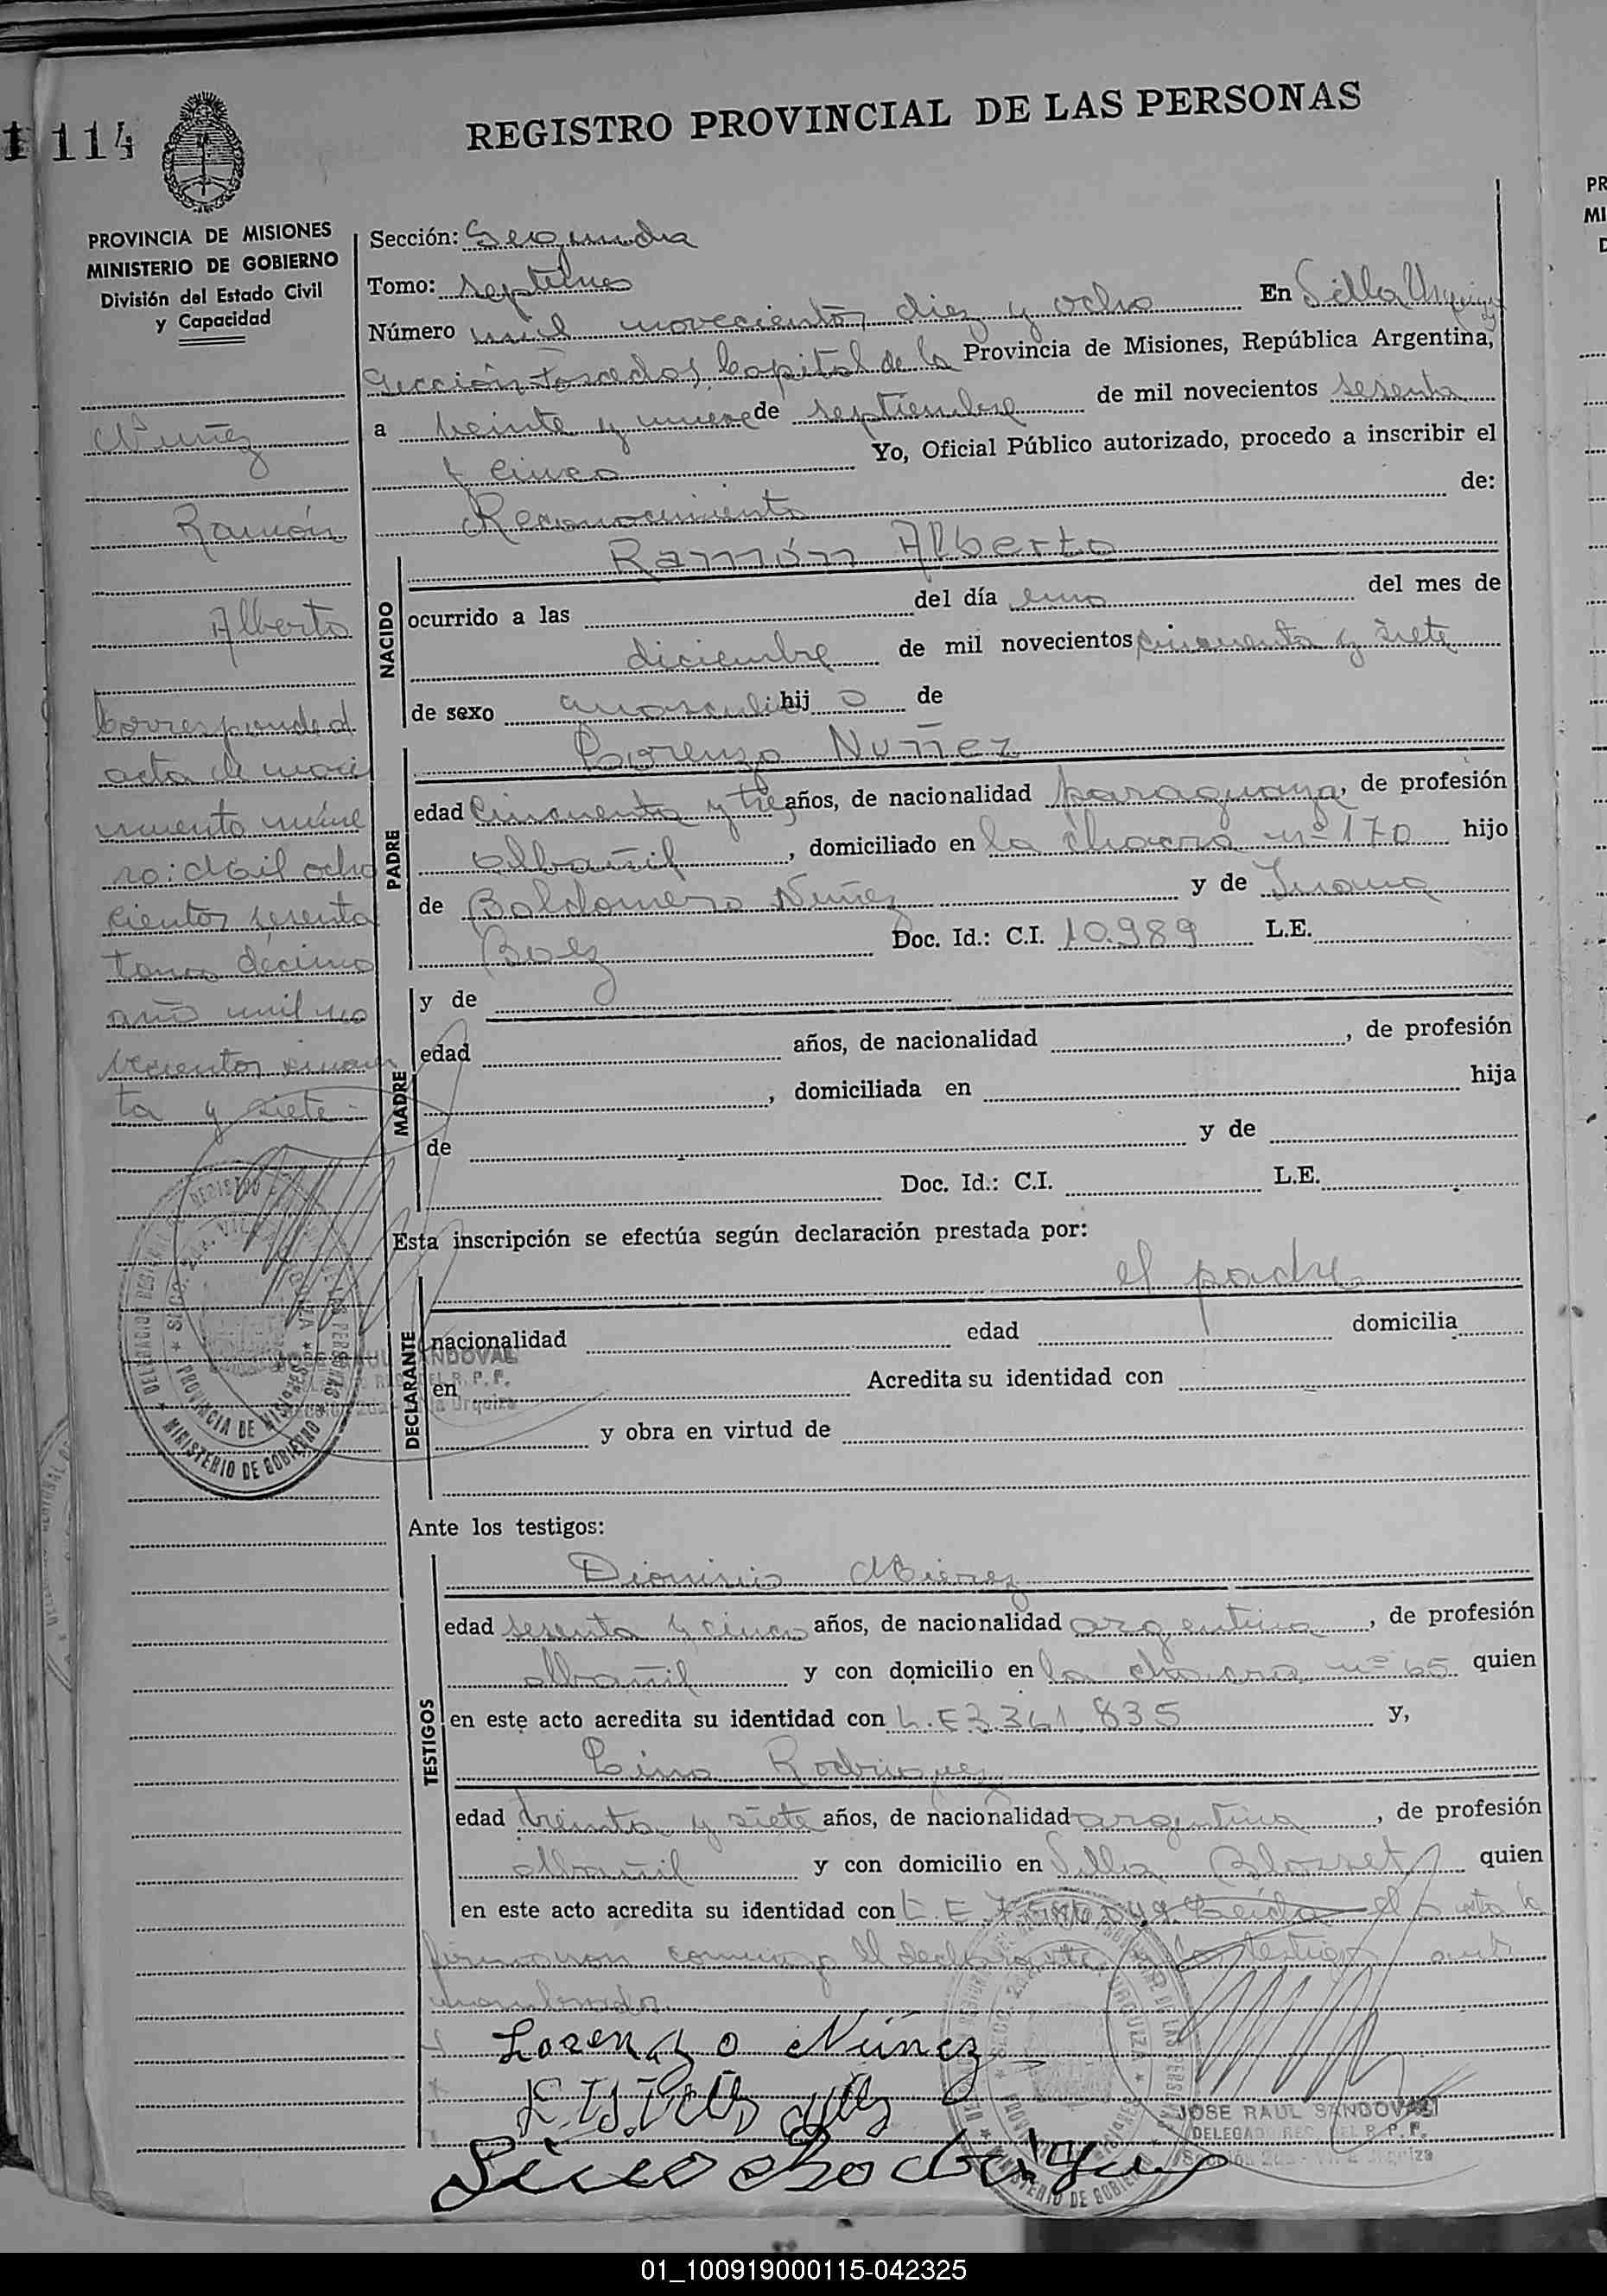 1 114
REGISTRO PROVINCIAL DE LAS PERSONAS
PROVINCIA DE MISIONES
MINISTERIO DE GOBIERNO
División del Estado Civil
y Capacidad
Nuñez
Ramón
Alberto
Corresponde al
acta de naci
miento núme
ro: Mil ocho
cientos sesenta
tomo décimo
año mil no
vecientos cincuen
ta y siete.
Sección: Segunda
Tomo: septimo
Número mil novecientos diez y ocho En Villa Urquiza
Sección Posadas, Capital de la Provincia de Misiones, República Argentina,
a veinte y nueve de septiembre de mil novecientos sesenta
y cinco Yo, Oficial Público autorizado, procedo a inscribir el
Reconocimiento de:
NACIDO
Ramón Alberto
ocurrido a las del día uno del mes de
diciembre de mil novecientos cincuenta y siete
de sexo masculino hij o de
PADRE
Lorenzo Nuñez
edad cincuenta y tres años, de nacionalidad paraguaya, de profesión
albañil, domiciliado en la chacra nº 170 hijo
de Baldomero Nuñez y de Juana
Baez Doc. Id.: C.I. 10.989 L.E.
MADRE
y de
edad años, de nacionalidad , de profesión
, domiciliada en hija
de y de
Doc. Id.: C.I. L.E.
Esta inscripción se efectúa según declaración prestada por:
el padre
DECLARANTE
nacionalidad edad domicilia
en Acredita su identidad con
y obra en virtud de
Ante los testigos:
TESTIGOS
Dionisio Mierez
edad sesenta y cinco años, de nacionalidad argentina, de profesión
albañil y con domicilio en la chacra nº 65 quien
en este acto acredita su identidad con L.E 3.361.835 y,
Lino Rodriguez
edad treinta y siete años, de nacionalidad argentina, de profesión
albañil y con domicilio en Villa Blosset quien
en este acto acredita su identidad con L.E. Leída el acta la
firmaron conmigo el declarante y los testigos
Lorenzo Núnez
Lino Rodriguez
JOSE RAUL SANDOVAL
DELEGADO REG. DEL R. P. P.
Sección 2da - Villa Urquiza
DELEGACION REGISTRO PROVINCIAL DE LAS PERSONAS
SECC. 2da. VILLA URQUIZA
PROVINCIA DE MISIONES
MINISTERIO DE GOBIERNO
01_100919000115-042325